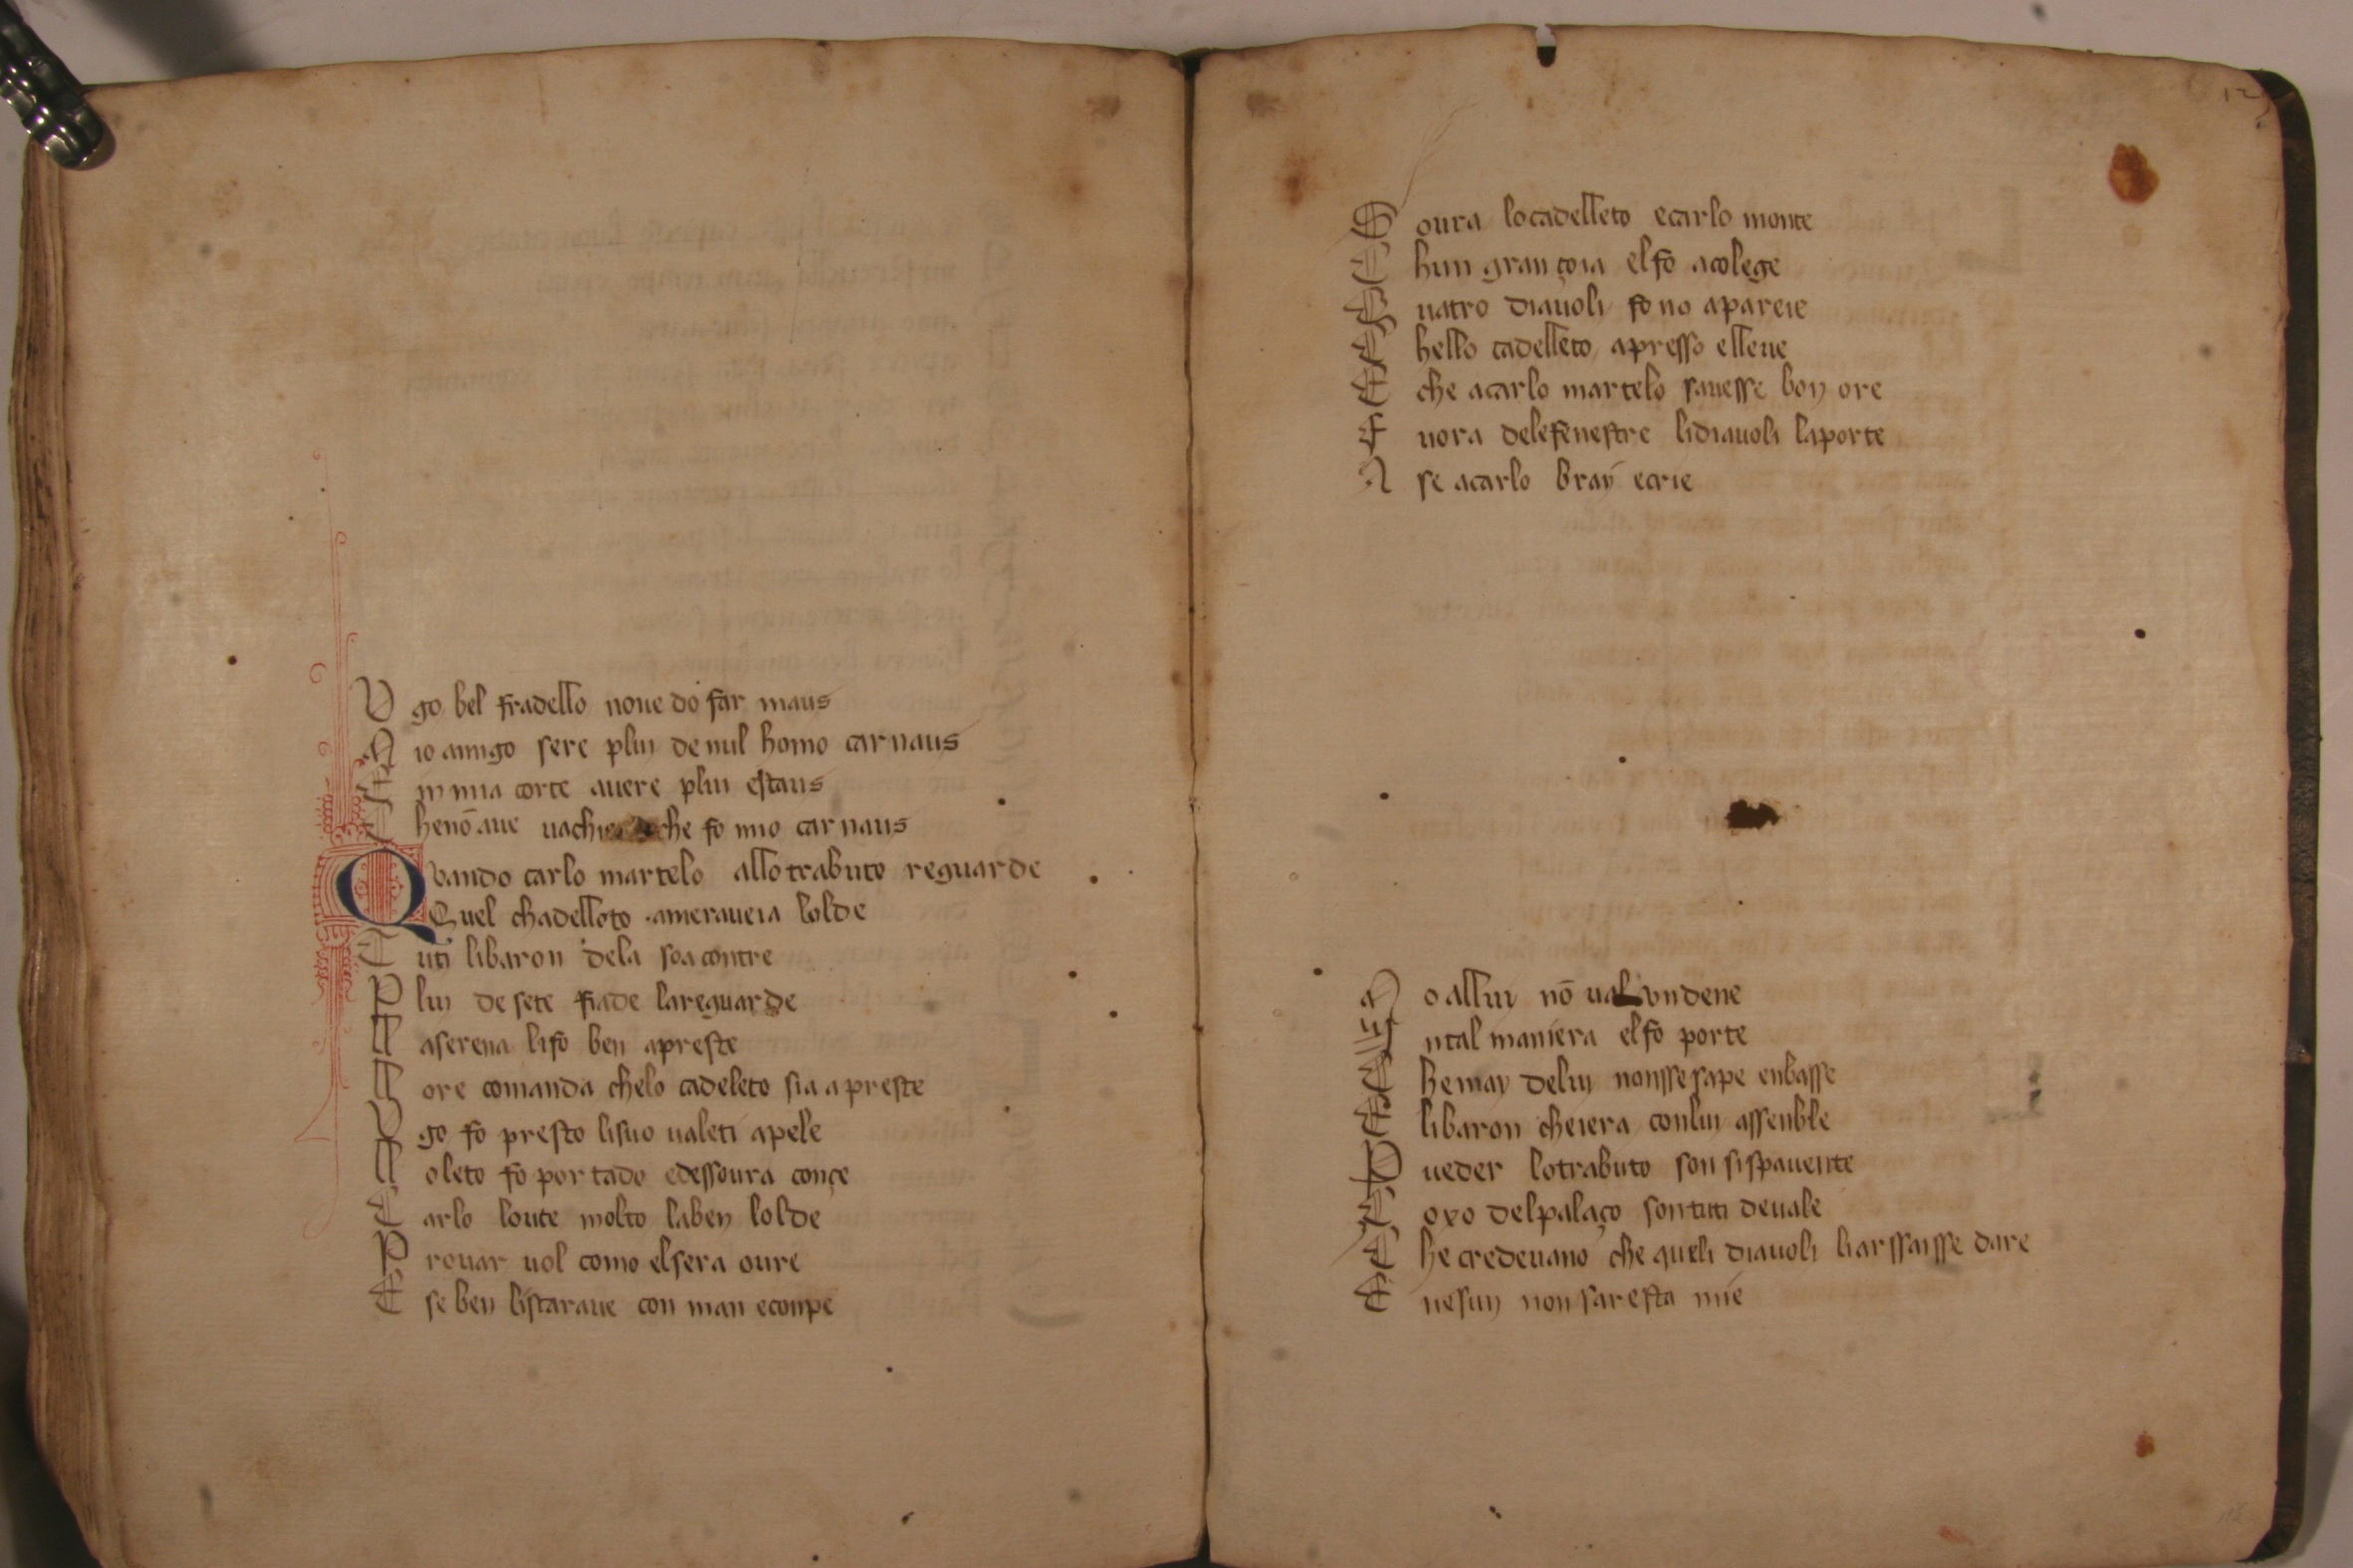 V go bel fradello noue do far maus
M io amigo sere plui de nul homo carnaus
E in mia corte auere plui estaus
C henō aue uachie che fo mio carnaus
Q vando carlo martelo allo trabuto reguarde
Quel chadelloto ameraueia lolde
T uti libaron dela soa contre
P lui de sete fiade lareguarde
L aserena lifo ben apreste
L ore comanda chelo cadeleto sia apreste
V go fo presto lisuo ualeti apele
L oleto fo portado edessoura conçe
C arlo loute molto laben lolde
P rouar uol como elsera oure
E se ben listaraue con man econpe
S oura locadelleto ecarlo monte
C hun gran çoia elfo acolege
Q uatro diauoli fono apareie
C hello cadelleto apresso elleue
E che acarlo martelo sauesse bon ore
F uora delefenestre lidiauoli laporte
A se acarlo bray ecrie
M o allui nō ual vndene
In tal maniera elfo porte
C he may delui nonssesape enbasse
E libaron cheiera conlui assenble
P ueder lotrabuto son sispauente
C oxo delpalaço sontuti deuale
C he credeuano che queli diauoli liarssaisse dare
E nesun non saresta mie